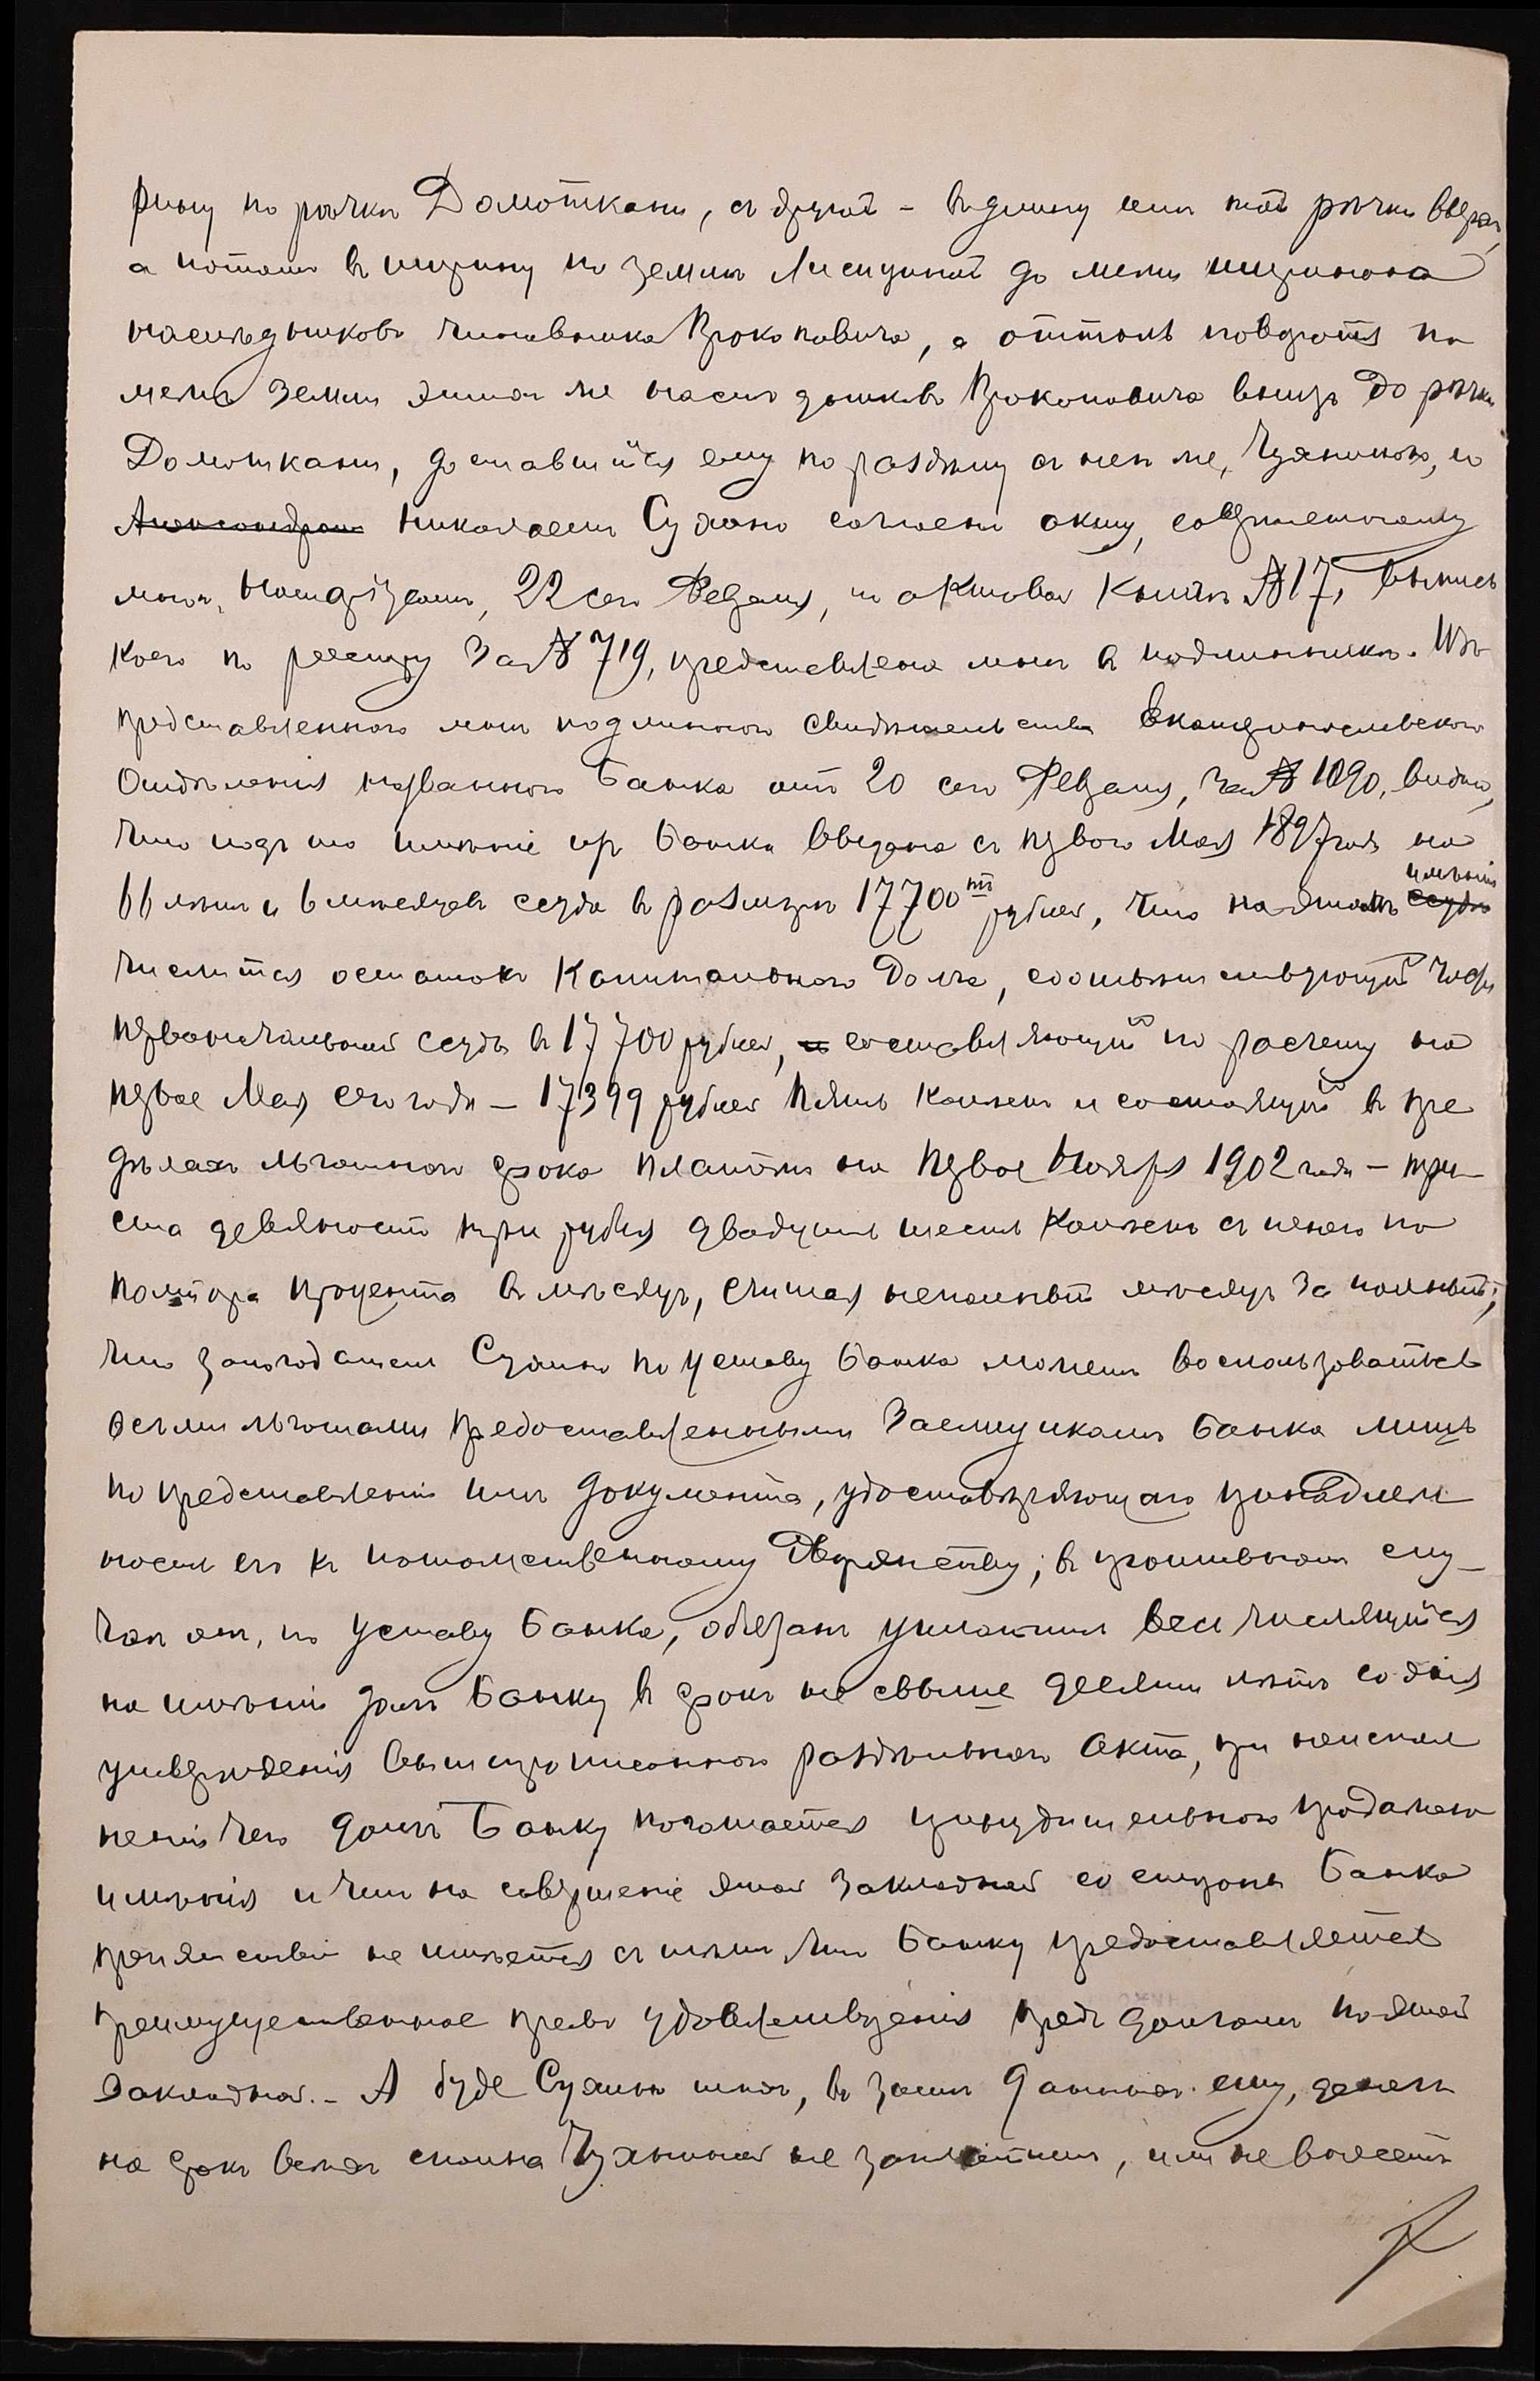 рину по рѣчкѣ Домоткани, съ другой - въ длину отъ той рѣчки вверхъ,
а потомъ въ ширину по землѣ Лисициной до межи имѣнія
наслѣдниковъ чиновника Прокоповича, а оттоль повороть по
межѣ земли этихъ же наслѣдниковъ Прокоповича внизъ до рѣчки
Домоткани, доставшійся ему по раздѣлу съ нею же, и
Александромъ Николаемъ согласно акту, совершенному
мною, Нотаріусомъ, 22 сего Февраля, по актовой книгѣ № 17, выпись
коего по реестру за № 719, представлена мнѣ въ подлинникѣ. Изъ
представленнаго мнѣ подлиннаго свидѣтельства Екатеринославскаго
Отдѣленія названнаго Банка отъ 20 сего Февраля, за № 1090, видно,
что подъ то имѣніе изъ Банка выдана съ перваго Мая 1897 года на
66 лѣтъ и 6 мѣсяцевъ ссуда въ размѣрѣ 17700тъ рублей, что на этомъ ссуды имѣніи
числится остатокъ капитальнаго долга, соотвѣтствующій
первоначальной ссудѣ въ 17700 рублей, и составляющій по расчету на
первое Мая сего года - 17399 рублей пять копѣекъ и состоящій въ пре
дѣлахъ льготнаго срока платежъ на первое Ноября 1902 года - три-
ста девяносто три рубля двадцать шесть копѣекъ съ пенею по
полтора процента въ мѣсяцъ, считая неполный мѣсяцъ за полный;
что залогодатель по Уставу Банка можетъ воспользоваться
всѣми льготами предоставленными заемщикамъ Банка лишь
по представленіи имъ документа, удостовѣряющаго принадлеж
ность его къ потомственному Дворянству; въ противномъ слу-
чаѣ онъ, по Уставу Банка, обязанъ уплатить весь числящійся
на имѣніи долгъ Банку въ срокъ не свыше десяти лѣтъ со дня
утвержденія вышепрописаннаго раздѣльнаго акта, при неиспол
неніи чего долгъ Банку погашается принудительною продажею
имѣнія и что на совершеніе этой закладной со стороны Банка
препятствій не имѣется съ тѣмъ что Банку предоставляется
преимущественное право удовлетворенія предъ долгомъ по этой
закладной. - А буде я, въ заемъ данныхъ ему, денегъ
на срокъ всѣхъ сполна не заплатитъ, или не внесетъ